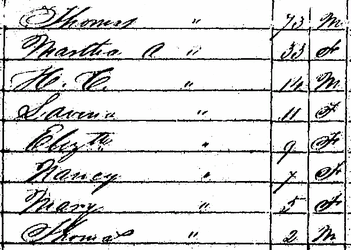 Thomas " 73 M
Martha A " 33 F
H. C. " 14 M
Lavinia " 11 F
Elizth " 9 F
Nancy " 7 F
Mary " 5 F
Thomas " 2 M